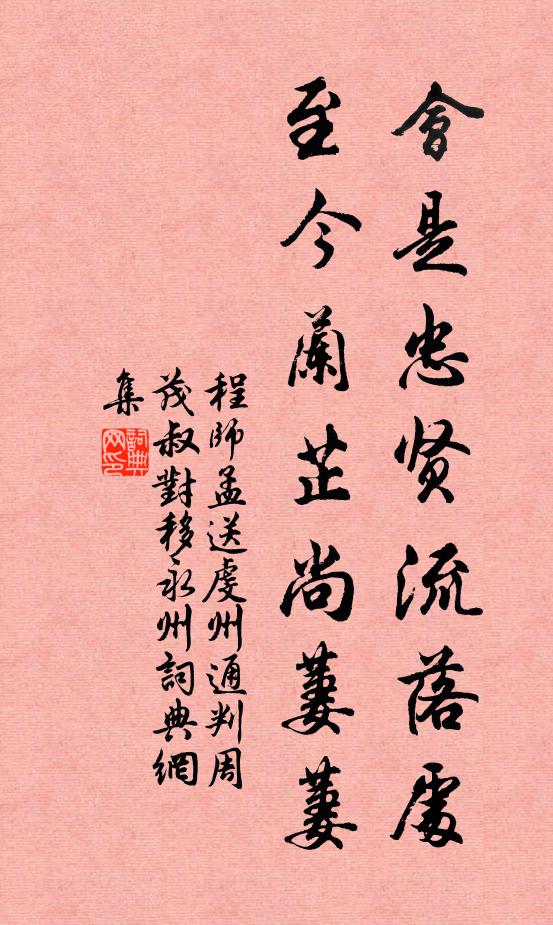 會是忠贤流落處
至今蘭芷尚萋萋
程師孟送虔州通判周
茂叔對移永州詞典網
集
詞典網印